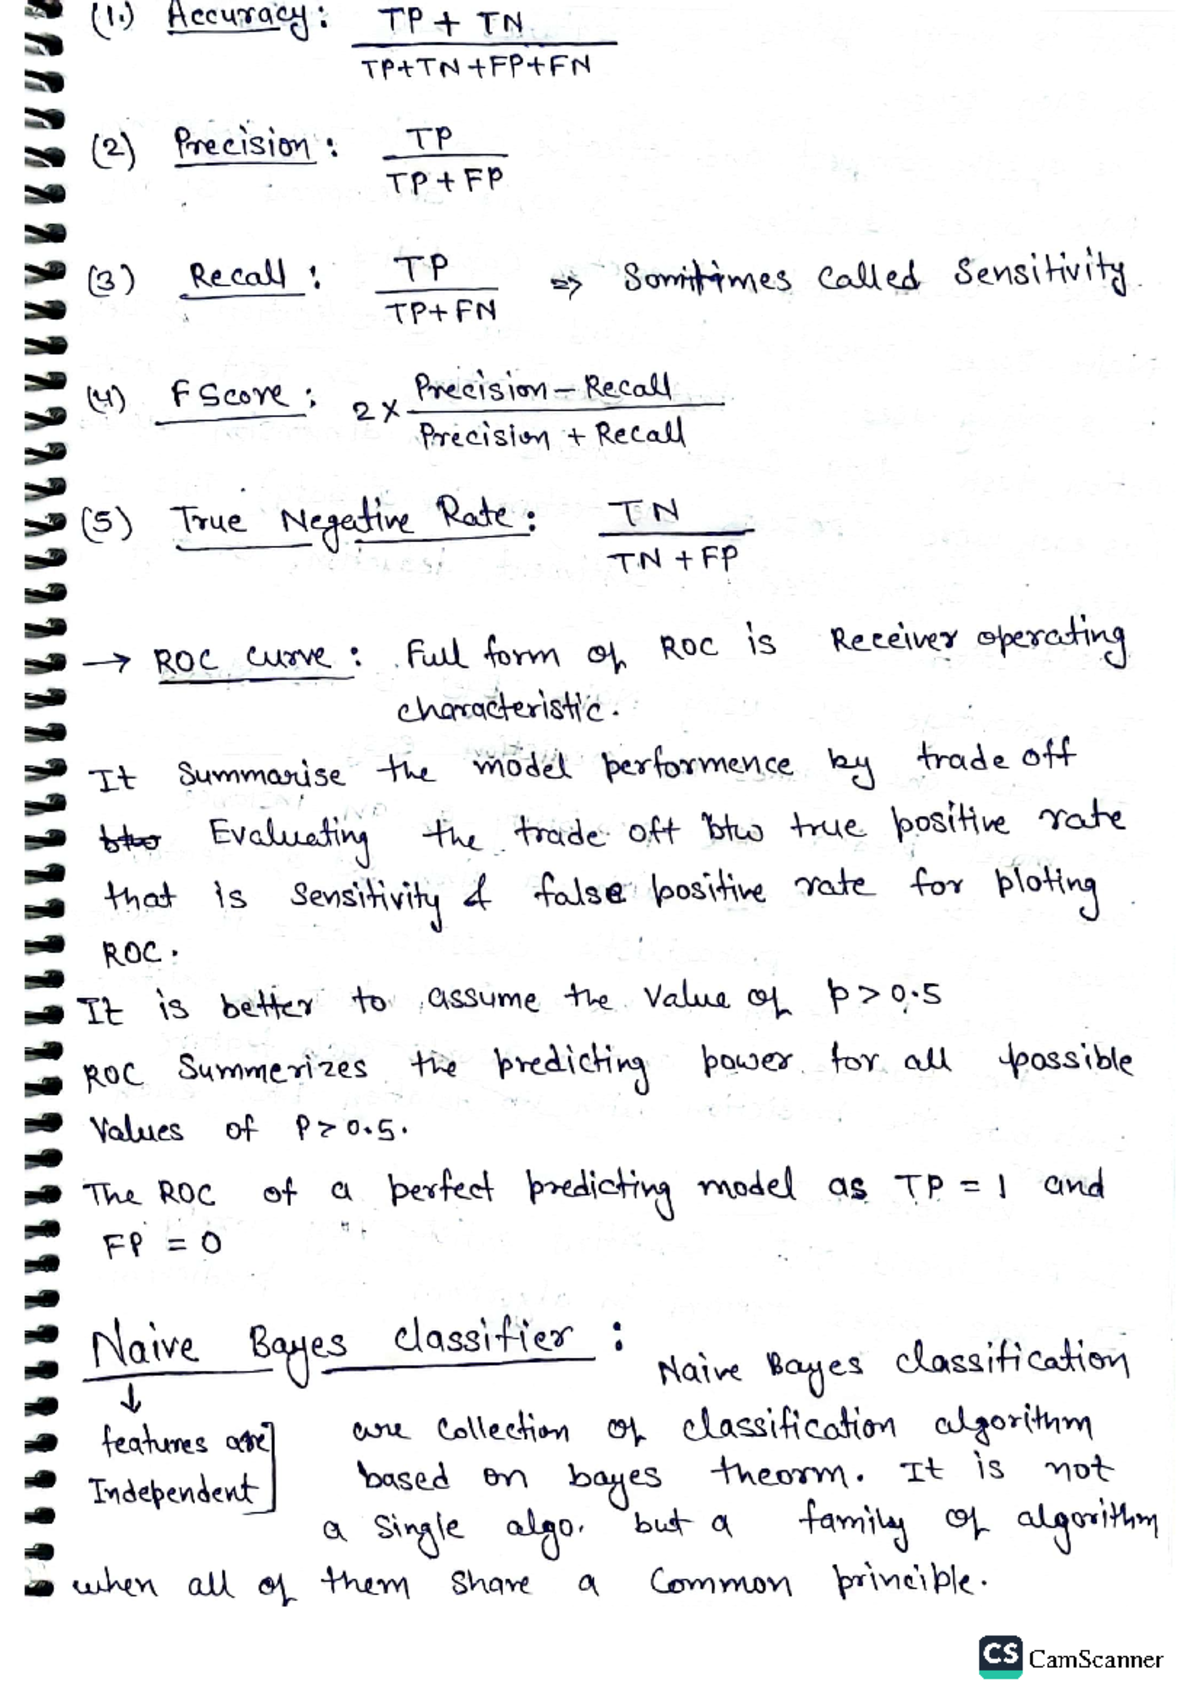 (1.) Accuracy: TP + TN
TP+TN+FP+FN
(2) Precision: TP
TP + FP
(3) Recall: TP ⇒ Somitimes called Sensitivity.
TP+FN
(4) F Score: 2 × Precision - Recall
Precision + Recall
(5) True Negative Rate: TN
TN + FP
→ ROC curve: Full form of ROC is Receiver operating
characteristic.
It Summarise the model performence by trade off
btw Evaluating the trade off btw true positive rate
that is sensitivity & false positive rate for ploting
ROC.
It is better to assume the value of p > 0.5
ROC Summerizes the predicting power for all possible
Values of P > 0.5.
The ROC of a perfect predicting model as TP = 1 and
FP = 0
Naive Bayes classifier:
Naive Bayes classification
↓
features are are collection of classification algorithm
Independent based on bayes theorm. It is not
a single algo. but a family of algorithm
when all of them share a common principle.
CS CamScanner